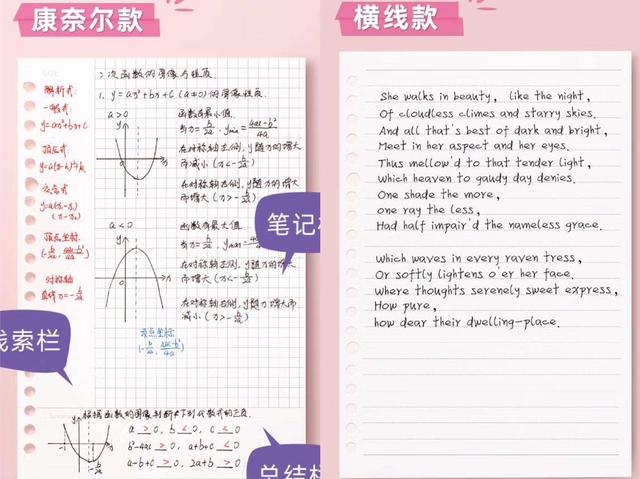 康奈尔款
二次函数的图像与性质
解析式:
一般式:
y=ax²+bx+c
顶点式:
y=a(x-h)²+k
交点式:
y=a(x-x₁)
(x-x₂)
顶点坐标:
对称轴
直线x=-b/2a
1. y=ax²+bx+c (a≠0) 的图像性质.
a>0
y
x
函数有最小值
当x=-b/2a, y min = 4ac-b²/4a
在对称轴左侧, y随x的增大
而减小 (x<-b/2a)
在对称轴右侧, y随x的增大
而增大 (x>-b/2a)
a<0
y
x
函数有最大值
在对称轴左侧, y随x的增大
而增大 (x<-b/2a)
在对称轴右侧, y随x的增大而
减小 (x>-b/2a)
顶点坐标:
(-b/2a, 4ac-b²/4a)
笔记
线索栏
根据函数的图像判断以下列代数式的正负.
a > 0, b < 0, c < 0
b²-4ac > 0, a+b+c < 0
a-b+c > 0, 2a+b > 0
y
-1
1
x
总结栏
横线款
She walks in beauty, like the night,
Of cloudless climes and starry skies.
And all that's best of dark and bright,
Meet in her aspect and her eyes.
Thus mellow'd to that tender light,
Which heaven to gaudy day denies.
One shade the more,
one ray the less,
Had half impair'd the nameless grace.
Which waves in every raven tress,
Or softly lightens o'er her face.
Where thoughts serenely sweet express,
How pure,
how dear their dwelling-place.